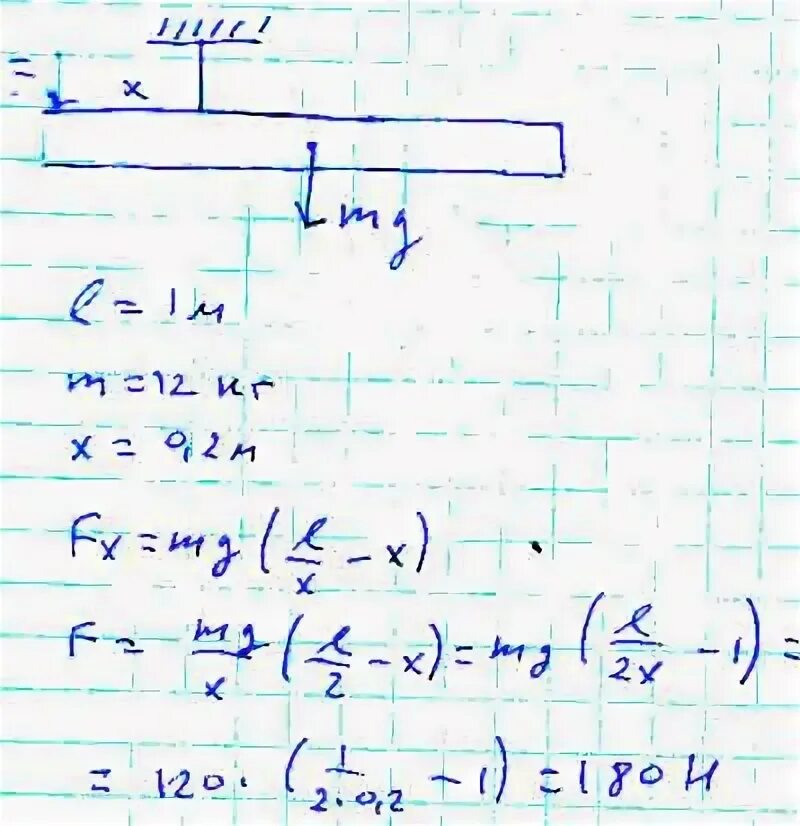 F
x
mg
l = 1 м
m = 12 кг
x = 0,2 м
Fx = mg (l/x - x)
F = mg/x (l/2 - x) = mg (l/2x - 1) =
= 120 · (1/2·0,2 - 1) = 180 Н